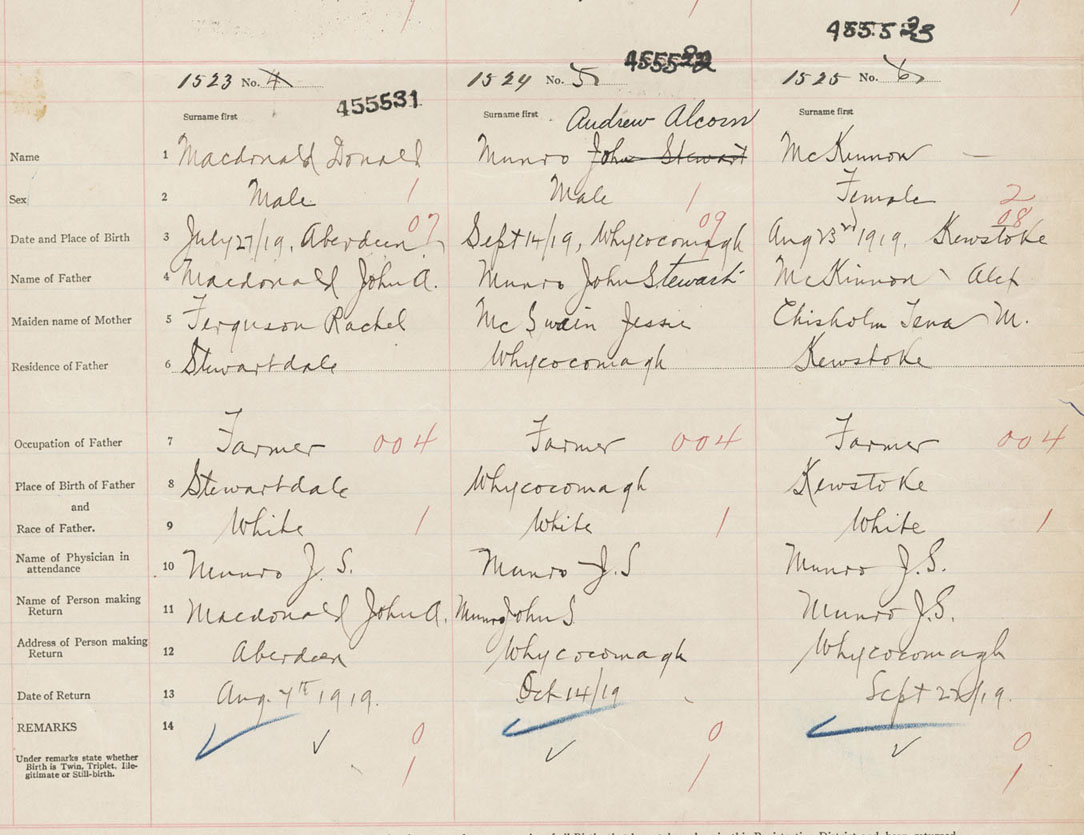 455523
1523 No. 4 1524 No. 5 455522 1525 No. 6
455531
Surname first Surname first Andrew Alcorn Surname first
Name 1 Macdonald Donald Munro John Stewart McKinnon —
Sex 2 Male 1 Male 1 Female 2
07 09 08
Date and Place of Birth 3 July 27/19, Aberdeen Sept 14/19, Whycocomagh Aug 23rd 1919, Kewstoke
Name of Father 4 Macdonald John A. Munro John Stewart McKinnon Alex
Maiden name of Mother 5 Ferguson Rachel McSwain Jessie Chisholm Tena M.
Residence of Father 6 Stewartdale Whycocomagh Kewstoke
Occupation of Father 7 Farmer 004 Farmer 004 Farmer 004
Place of Birth of Father 8 Stewartdale Whycocomagh Kewstoke
and
Race of Father. 9 White 1 White 1 White 1
Name of Physician in
attendance 10 Munro J. S. Munro J. S Munro J. S.
Name of Person making
Return 11 Macdonald John A. Munro John S Munro J. S.
Address of Person making
Return 12 Aberdeen Whycocomagh Whycocomagh
Date of Return 13 Aug. 7th 1919. Oct 14/19 Sept 22/19.
REMARKS 14 0 0 0
Under remarks state whether
Birth is Twin, Triplet, Ille-
gitimate or Still-birth. 1 1 1